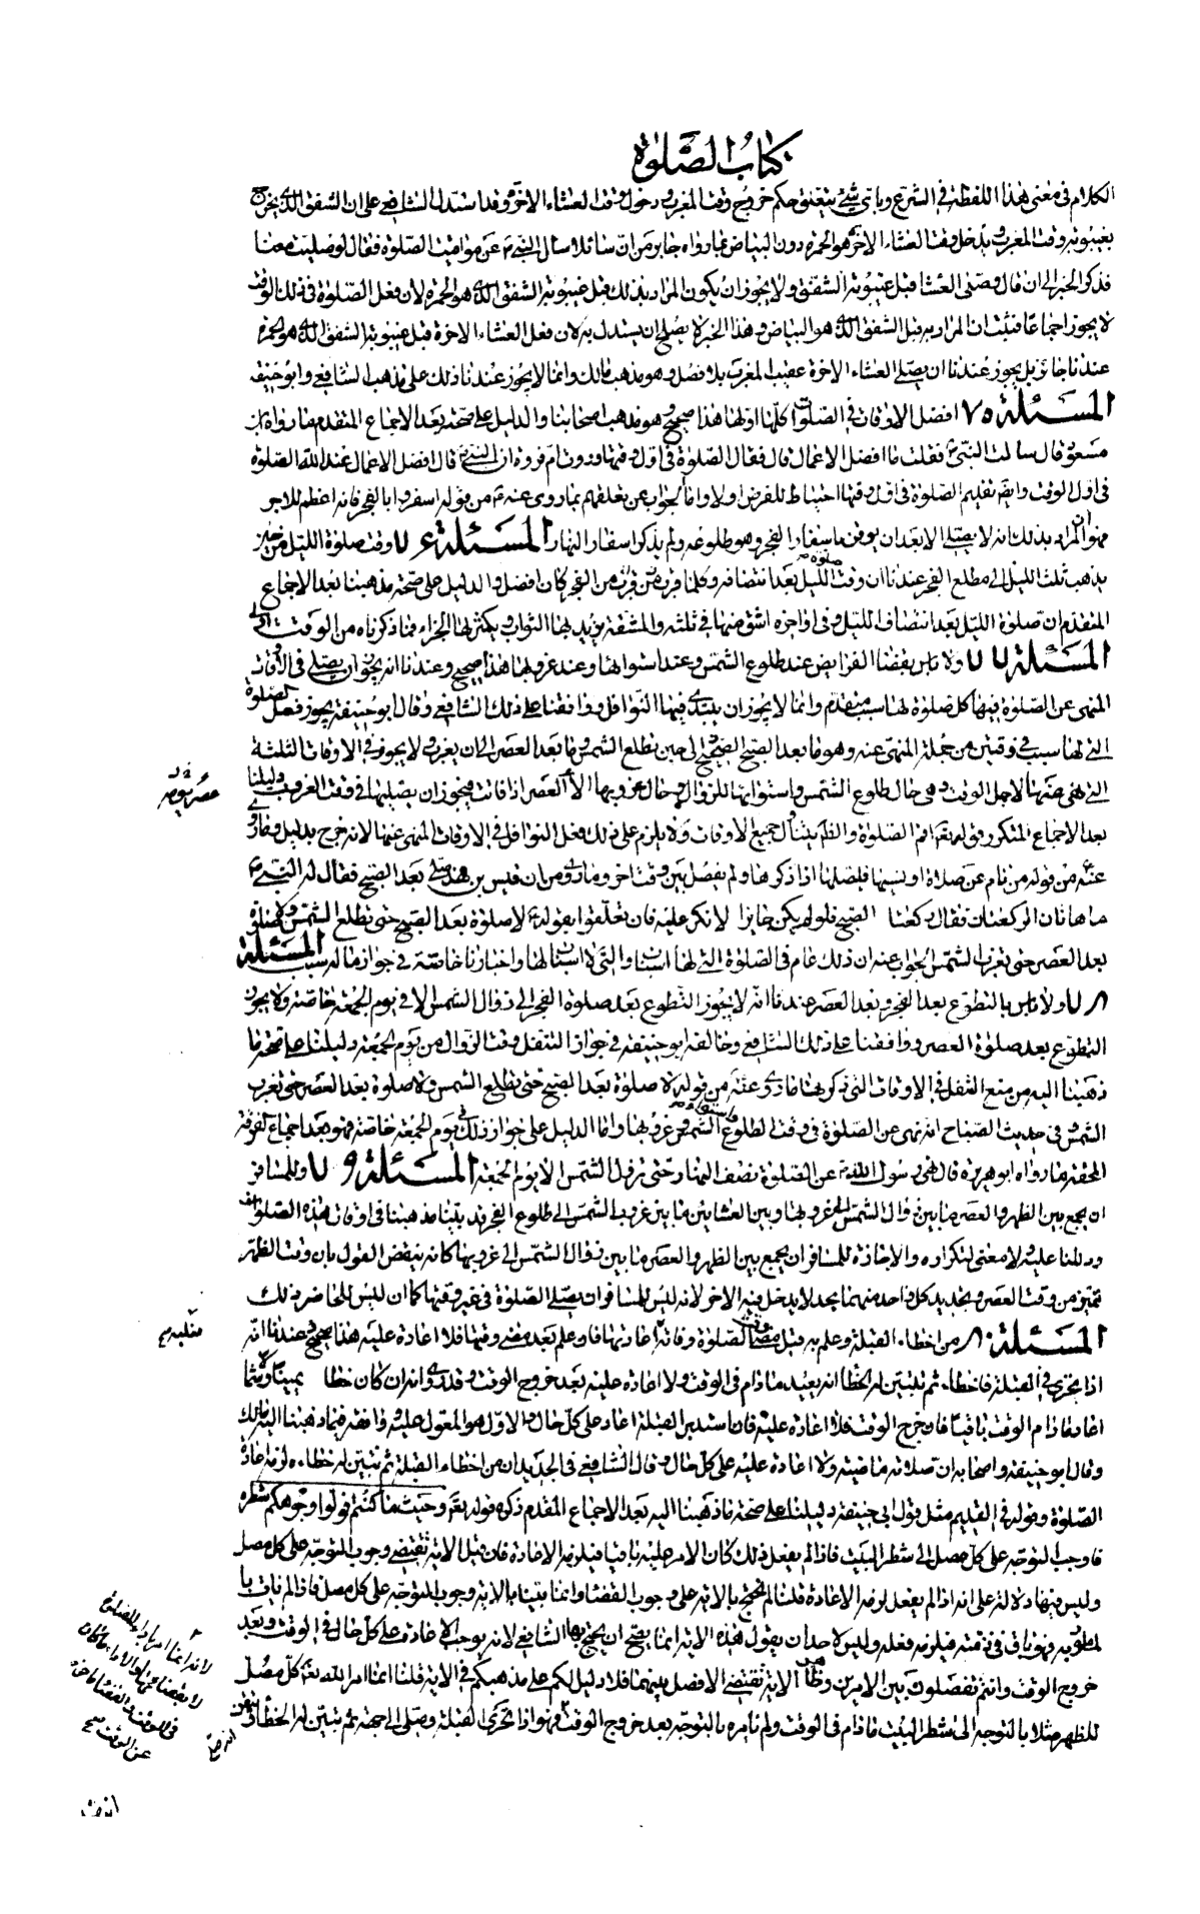 كتاب الصلوة
الكلام في معنى هذا اللفظة في الشرع وباتى شيء يتعلق حكم خروج وقت المغرب ودخول وقت العشاء الاخرة وقد استدل الشافعي على ان الشفق الذي يخرج
بغيبوبته وقت المغرب ويدخل وقت العشاء الاخرة هو الحمرة دون البياض بما رواه جابر من انّ سائلا سأل النبي عن مواقيت الصلوة فقال لو صليت معنا
فذكر الخبر الى ان قال وصلى العشا قبل غيبوبة الشفق ولا يجوز ان يكون المراد بذلك قبل غيبوبة الشفق الذي هو الحمرة لان فعل الصلوة في ذلك الوقت
لا يجوز اجماعا فثبت ان المراد به قبل الشفق الذي هو البياض وهذا الخبر لا يصلح ان يستدل به لان فعل العشاء الاخرة قبل غيبوبة الشفق الذي هو الحمرة
عندنا جائز بل يجوز عندنا ان يصلي العشاء الاخرة عقيب المغرب بلا فصل وهو مذهب مالك وانما لا يجوز عندنا ذلك على مذهب الشافعي وابو حنيفة
المسئلة ٧٥ افضل الاوقات في الصلوات كلها اولها هذا صحيح وهو مذهب اصحابنا والدليل على صحته بعد الاجماع المتقدم ما رواه ابن
مسعود قال سالت النبي فقلت ما افضل الاعمال قال فقال الصلوة في اول وقتها وروت ام فروة ان النبي قال افضل الاعمال عند الله الصلوة
في اول الوقت وايضا تقديم الصلوة في اول وقتها احتياط للفرض اولا واما الجواب عن تعلقهم بما روى عنه من قوله اسفروا بالفجر فانه اعظم للاجر
فهو ان المراد بذلك انه لا يصلي الا بعد ان يوقن باسفار الفجر وهو طلوعه ولم يذكر اسفار النهار المسئلة ٧٦ وقت صلوة الليل من حين
يذهب ثلث الليل الى مطلع الفجر عندنا ان وقت صلوة الليل بعد انتصافه وكلما قرب من الفجر كان افضل والدليل على صحة مذهبنا بعد الاجماع
المتقدم ان صلوة الليل بعد انتصاف الليل وفي اواخره اشق منها في ثلثه والمشقة يزيد بها الثواب ويكثر لها الجزاء فما ذكرناه من الوقت اولى
المسئلة ٧٧ ولا باس بقضا الفرايض عند طلوع الشمس وعند استوائها وعند غروبها هذا صحيح وعندنا انه يجوز ان يصلي في الاوقات
المنهى عن الصلوة فيها كل صلوة لها سبب متقدم وانما لا يجوز ان يبتدى فيها النوافل ووافقنا على ذلك الشافعي وقال ابو حنيفة يجوز فعل الصلوة
التي لها سبب في وقتين من جملة المنهى عنه وهو ما بعد الصبح الى حين تطلع الشمس وما بعد العصر الى ان يغرب ولا يجوز في الاوقات الثلثة
التي نهى عنها لاجل الوقت وهي حال طلوع الشمس واستوائها للزوال وحال غروبها الا العصر اذا فات فيجوز ان يصليها في وقت الغروب دليلنا
بعد الاجماع المتكرر قوله تعالى اقم الصلوة والظاهر يتناول جميع الاوقات ولا يلزم على ذلك فعل النوافل في الاوقات المنهى عنها لانه خرج بدليل وما روي
عنه من قوله من نام عن صلاة او نسيها فليصلها اذا ذكرها ولم يفصل بين وقت اخر وما روي من ان قيس بن صلى بعد الصبح فقال له النبي
ما هاتان الركعتان فقال ركعتا الصبح فلو لم يكن جايزا لانكر عليه فان تعلقوا بقوله لا صلوة بعد الصبح حتى تطلع الشمس ولا صلوة
بعد العصر حتى تغرب الشمس الجواب عنه ان ذلك عام في الصلوة التي لها اسباب والتي لا اسباب لها واخبارنا خاصة في جواز ما له سبب المسئلة
٧٨ ولا باس بالتطوع بعد الفجر وبعد العصر عندنا انه لا يجوز التطوع بعد صلوة الفجر الى زوال الشمس الا في يوم الجمعة خاصة ولا يجوز
التطوع بعد صلوة العصر ووافقنا على ذلك الشافعي وخالفه ابو حنيفة في جواز التنفل وقت الزوال من يوم الجمعة دليلنا على صحة ما
ذهبنا اليه من منع النفل في الاوقات التي ذكرها ما روى عنه من قوله لا صلوة بعد الصبح حتى تطلع الشمس ولا صلوة بعد العصر حتى تغرب
الشمس وفي حديث الصباح انه نهى عن الصلوة في وقت طلوع الشمس واستوائها وغروبها واما الدليل على جواز ذلك في يوم الجمعة خاصة فهو بعد اجماع الفرقة
المحقة ما رواه ابو هريرة قال نهى رسول الله عن الصلوة نصف النهار حتى تزول الشمس الا يوم الجمعة المسئلة ٧٩ وللمسافر
ان يجمع بين الظهر والعصر ما بين زوال الشمس الى غروبها وبين العشائين ما بين غروب الشمس الى طلوع الفجر قد بينا مذهبنا في اوقات هذه الصلوات
ودللنا عليه ولا معنى لتكراره والاجازة للمسافر ان يجمع بين الظهر والعصر ما بين زوال الشمس الى غروبها كانه ينقض القول بان وقت الظهر
تميز من وقت العصر وتحديد كل واحد منهما بحد لا يدخل فيه الاخر لانه ليس للمسافر ان يصلي الصلوة في غير وقتها كما ان ليس للحاضر ذلك
المسئلة ٨٠ من اخطاء القبلة وعلم به قبل مضي وقت الصلوة وفاته اعادتها فان علم بعد مضي وقتها فلا اعادة عليه هذا صحيح عندنا انه
اذا تحرى في القبلة فاخطاء ثم تبين له الخطا انه يعيد ما دام في الوقت ولا اعادة عليه بعد خروج الوقت وقد روي انه ان كان خطا يمينا وشمالا
اعاد ما دام الوقت باقيا فان خرج الوقت فلا اعادة عليه فان استدبر القبلة اعاد على كل حال والاول هو المعول عليه وافقنا فيما ذهبنا اليه مالك
وقال ابو حنيفة واصحابه ان صلاته ماضية ولا اعادة عليه على كل حال وقال الشافعي في الجديد ان من اخطاء القبلة ثم تبين له خطاءه لزمه اعادة
الصلوة وقوله في القديم مثل قول ابي حنيفة دليلنا على صحة ما ذهبنا اليه بعد الاجماع المقدم ذكره قوله تعالى وحيث ما كنتم فولوا وجوهكم شطره
فاوجب التوجه على كل مصل الى شطر البيت فاذا لم يفعل ذلك كان الامر عليه باقيا فيلزمه الاعادة فان قيل الاية تقتضي وجوب التوجه على كل مصل
وليس فيها دلالة على انه اذا لم يفعل لزمه الاعادة قلنا لم نحتج بالاية على وجوب القضا وانما بينا بالاية وجوب التوجه على كل مصل فاذا لم يات با
لمامور به فهو باق في ذمته فيلزمه فعله وليس لاحد ان يقول هذه الاية انما يصح ان يحتج بها الشافعي لانه يوجب الاعادة على كل حال في الوقت وبعد
خروج الوقت وانتم تفصلون بين الامرين وظاهر الاية تقتضي الا فصل بينهما فلا دليل لكم على مذهبكم في الاية قلنا انما امر الله تعالى كل مصل
للظهر مثلا بالتوجه الى شطر البيت ما دام في الوقت ولم يامره بالتوجه بعد خروج الوقت فهو اذا تحرى القبلة وصلى الى جهة ثم تبين له الخطا في